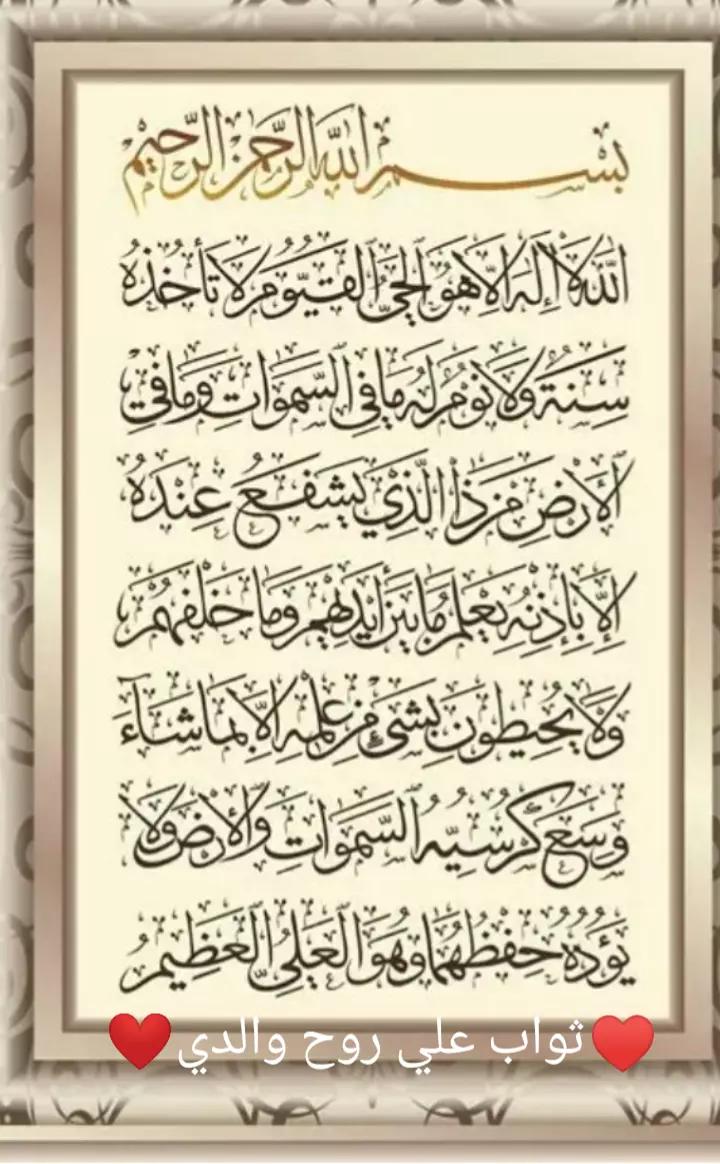 بسم الله الرحمن الرحيم
الله لا إله إلا هو الحي القيوم لا تأخذه
سنة ولا نوم له ما في السموات وما في
الأرض من ذا الذي يشفع عنده
إلا بإذنه يعلم ما بين أيديهم وما خلفهم
ولا يحيطون بشيء من علمه إلا بما شاء
وسع كرسيه السموات والأرض ولا
يؤده حفظهما وهو العلي العظيم
❤️ثواب علي روح والدي❤️